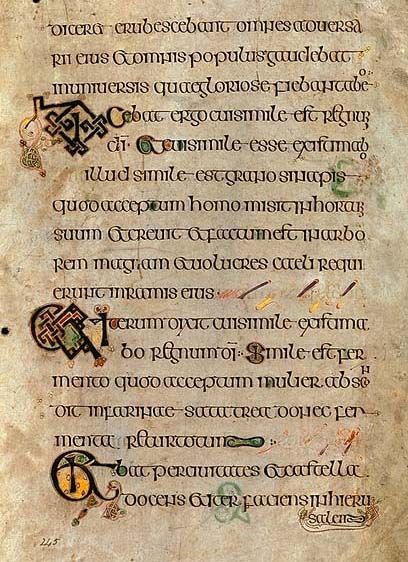 dicera erubescebant omnes aduersa
rii eius & omnis populus gaudebat
in uniuersis quae gloriose fiebant abeo
Dicebat ergo cui simile est regnum
dī & cui simile esse existimabo
illud simile est grano sinapis
quod acceptum homo misit in hortum
suum & creuit & factum est in arbo
rem magnam & uolucres caeli requi
erunt in ramis eius
& iterum dixit cui simile existima
bo regnum dī Simile est fer
mento quod acceptum mulier absn
dit in farinae sata trea donec fer
menta retur totum
& ibat per ciuitates & castella
docens & iter faciens in hieru
salem
245